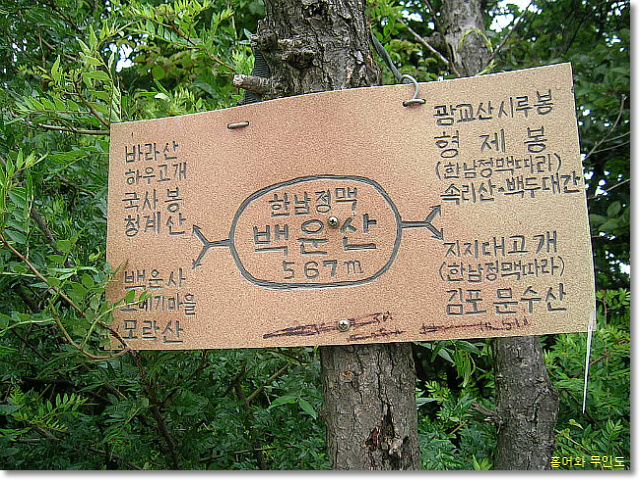 바라산
하우고개
국사봉
청계산
백운사
오메기마을
모락산
한남정맥
백운산
567m
광교산시루봉
형제봉
(한남정맥따라)
속리산·백두대간
지지대고개
(한남정맥따라)
김포 문수산
홍어와 무인도